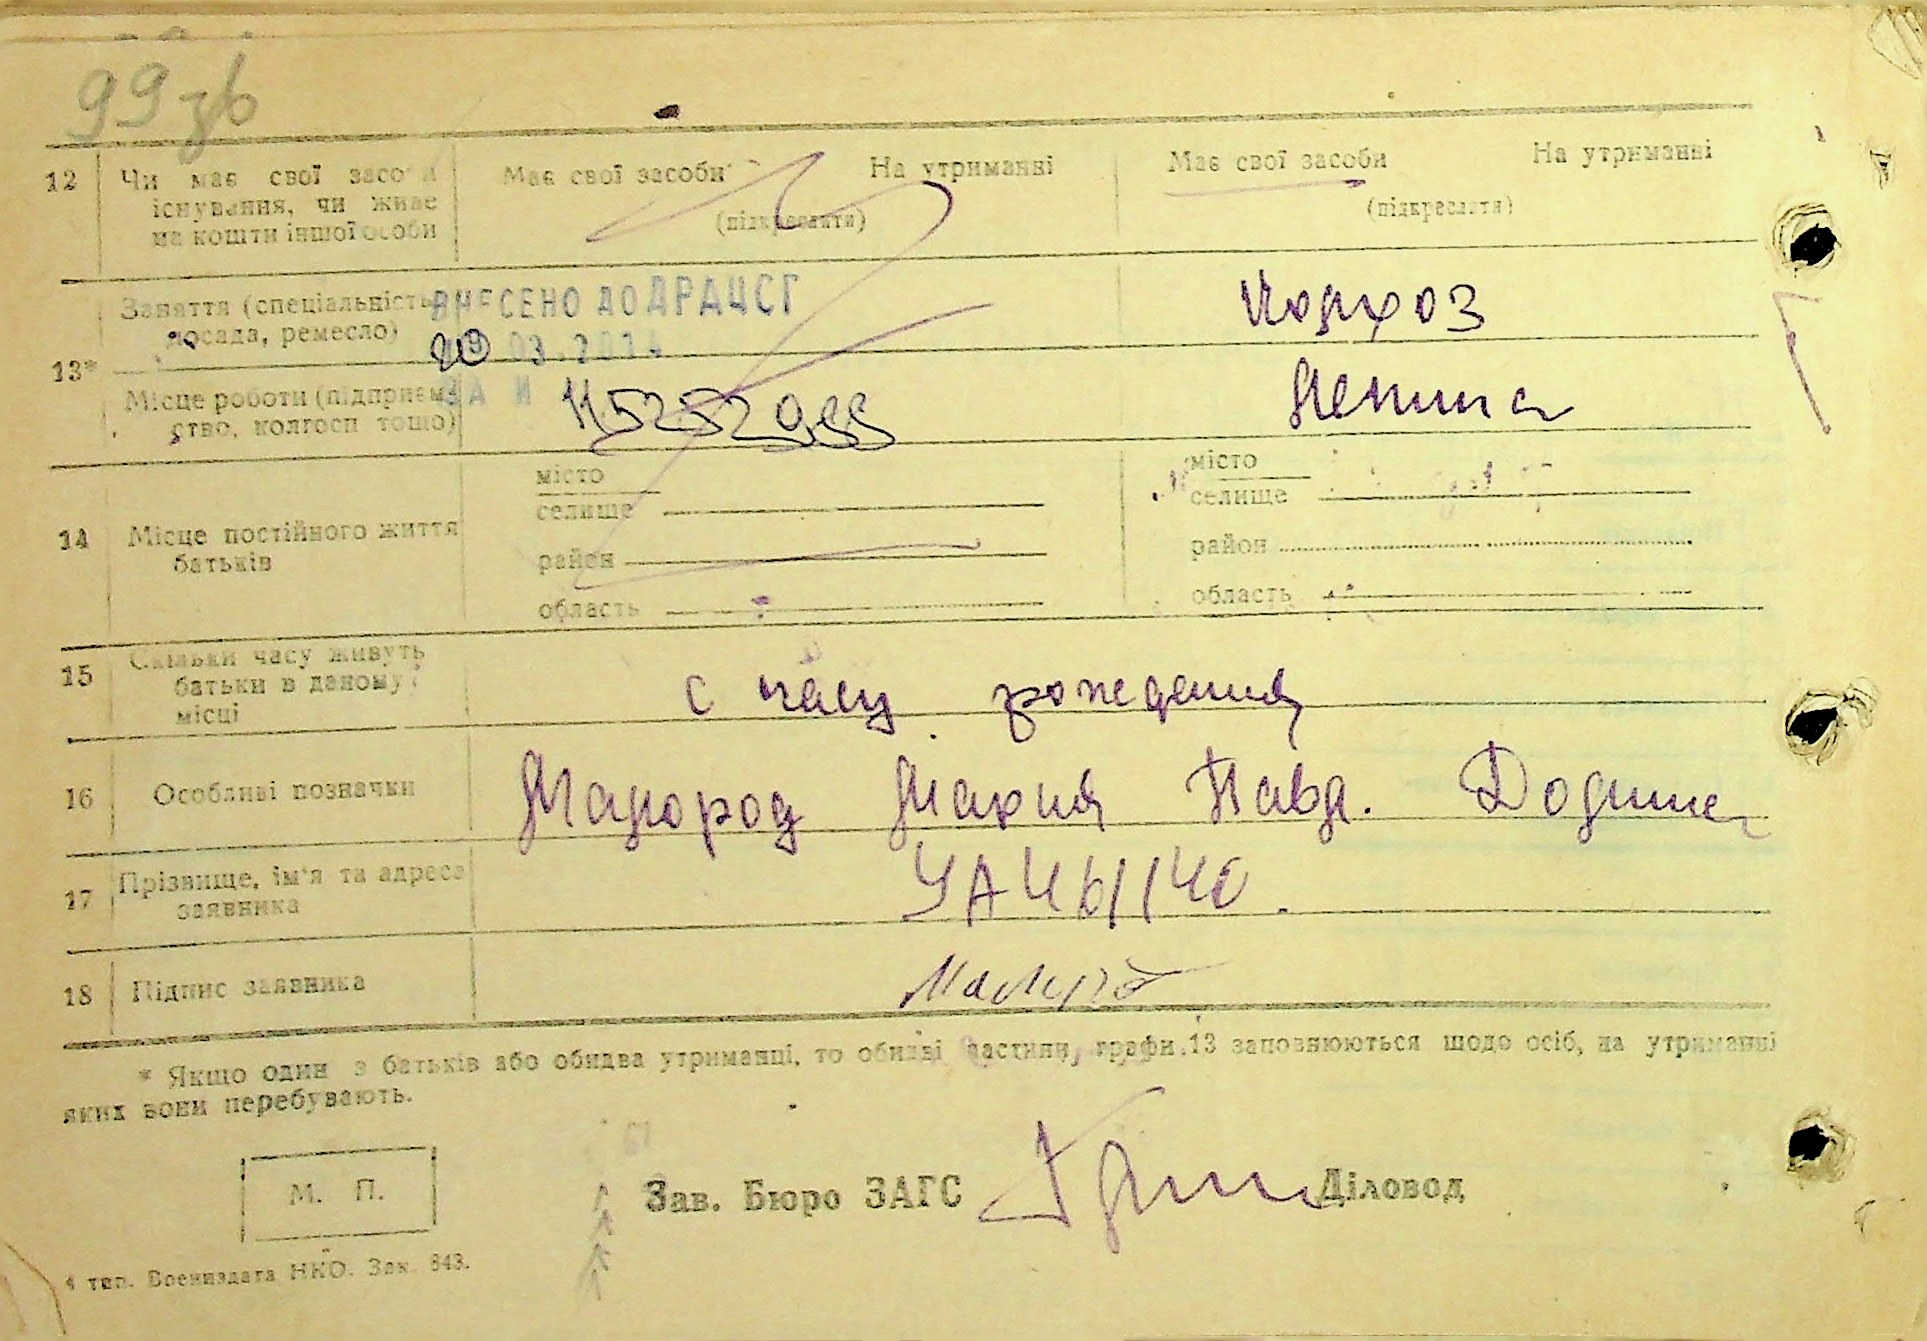 99 зв
12 Чи має свої засоби Має свої засоби На утриманні Має свої засоби На утриманні
існування, чи живе (підкреслити) (підкреслити)
на кошти іншої особи
Заняття (спеціальність, ВНЕСЕНО ДО ДРАЦСГ колхоз
посада, ремесло)
13*
Місце роботи (підприєм- ЗА И Ленина
ство, колгосп тощо)
місто місто
селище селище
14 Місце постійного життя
батьків
район район
область область
15 Скільки часу живуть
батьки в даному с часу рождения
місці
16 Особливі позначки Мария Павл.
17 Прізвище, ім'я та адреса
заявника
18 Підпис заявника
* Якщо один з батьків або обидва утриманці, то обидві частини графи 13 заповнюються щодо осіб, на утриманні
яких вони перебувають.
М. П.
Зав. Бюро ЗАГС Діловод
4 тип. Воениздата НКО. Зак. 843.